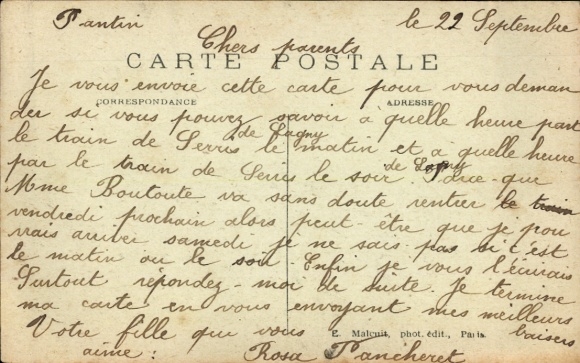 Pantin le 22 Septembre
Chers parents
CARTE POSTALE
Je vous envoie cette carte pour vous deman
CORRESPONDANCE ADRESSE
der si vous pouvez savoir a quelle heure part
de Lagny
le train de Serris le matin et a quelle heure
de Lagny
par le train de Serris le soir. Parce-que
Mme Boutoute va sans doute rentrer le train
vendredi prochain alors peut-être que je pou
vrais arriver samedi je ne sais pas si c'est
le matin ou le soir. Enfin je vous l'écrirais
Surtout répondez-moi de suite. Je termine
ma carte en vous envoyant mes meilleurs
baisers
Votre fille qui vous
E. Malcuit, phot. édit., Paris
aime : Rosa Pancheret